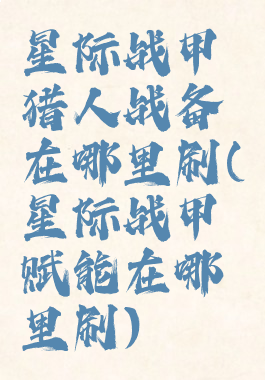 星际战甲
猎人战备
在哪里刷(
星际战甲
赋能在哪
里刷)